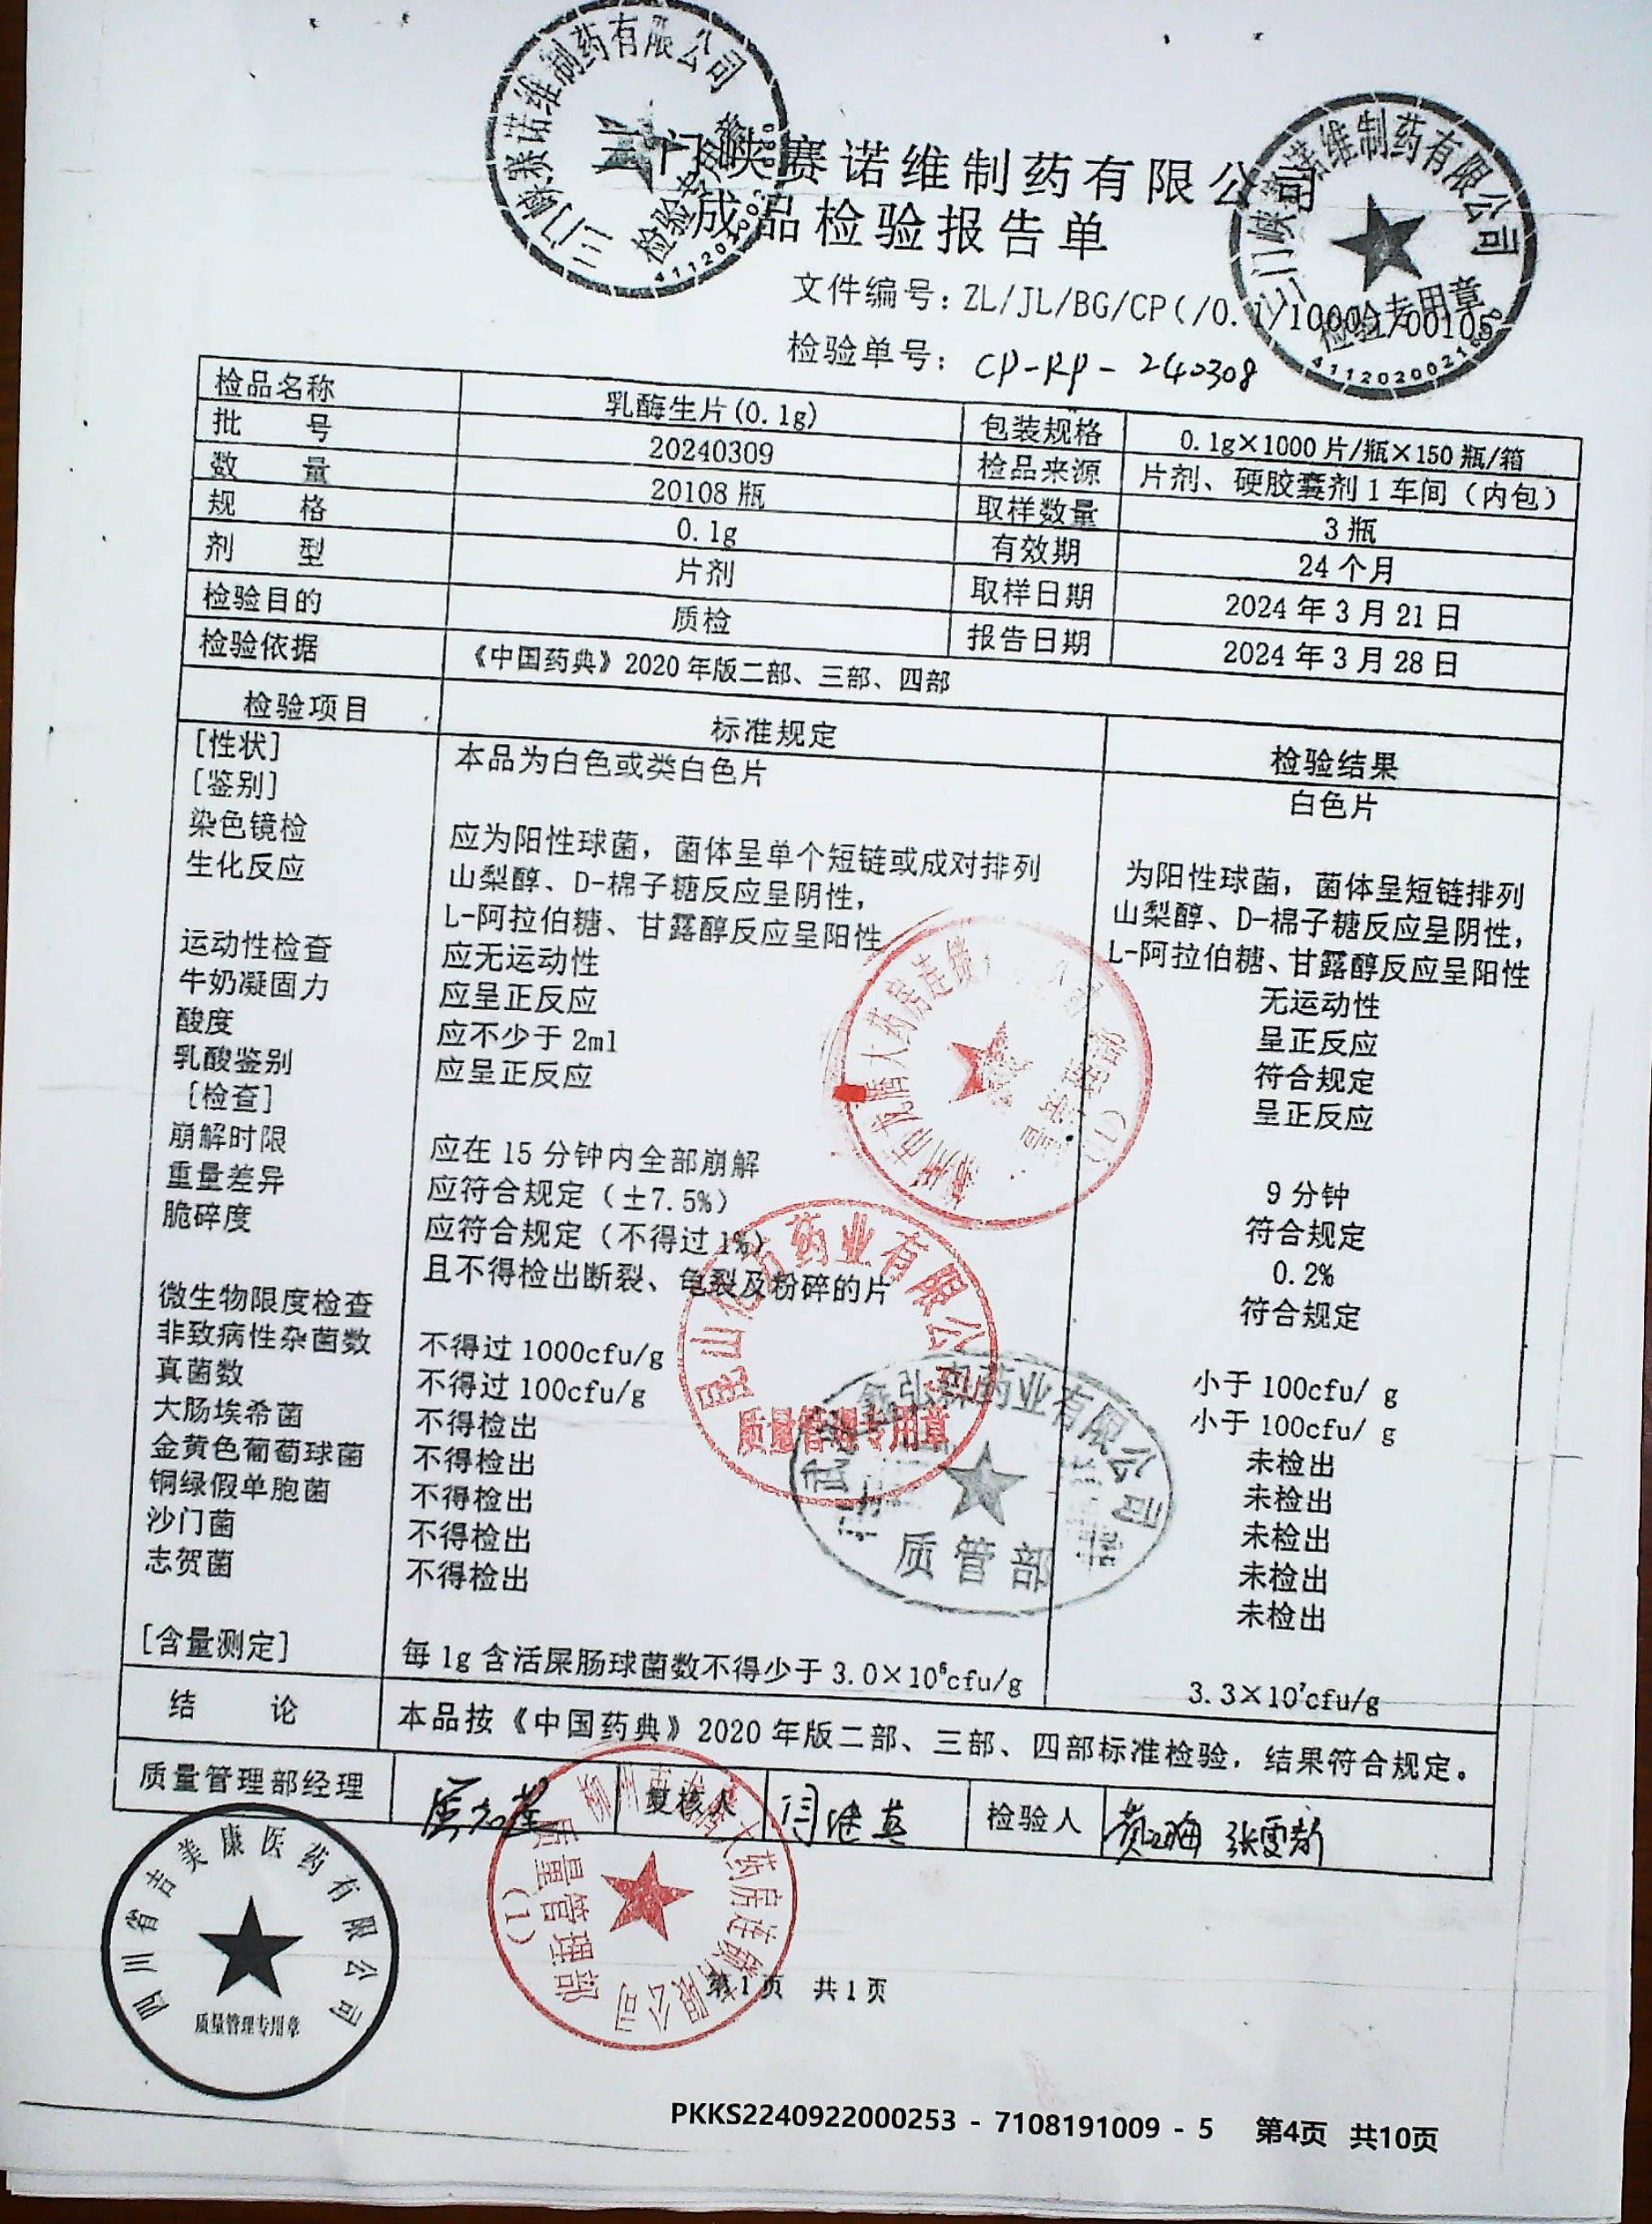 三门峡赛诺维制药有限公司
成品检验报告单
文件编号：ZL/JL/BG/CP(/0.1)/10001/00105
检验单号：CP-RP-240308
检品名称 乳酶生片(0.1g) 包装规格 0.1g×1000片/瓶×150瓶/箱
批号 20240309 检品来源 片剂、硬胶囊剂1车间（内包）
数量 20108瓶 取样数量 3瓶
规格 0.1g 有效期 24个月
剂型 片剂 取样日期 2024年3月21日
检验目的 质检 报告日期 2024年3月28日
检验依据 《中国药典》2020年版二部、三部、四部
检验项目 标准规定 检验结果
[性状] 本品为白色或类白色片 白色片
[鉴别]
染色镜检 应为阳性球菌，菌体呈单个短链或成对排列 为阳性球菌，菌体呈短链排列
生化反应 山梨醇、D-棉子糖反应呈阴性， 山梨醇、D-棉子糖反应呈阴性，
L-阿拉伯糖、甘露醇反应呈阳性 L-阿拉伯糖、甘露醇反应呈阳性
运动性检查 应无运动性 无运动性
牛奶凝固力 应呈正反应 呈正反应
酸度 应不少于2ml 符合规定
乳酸鉴别 应呈正反应 呈正反应
[检查]
崩解时限 应在15分钟内全部崩解 9分钟
重量差异 应符合规定（±7.5%） 符合规定
脆碎度 应符合规定（不得过1%） 0.2%
且不得检出断裂、龟裂及粉碎的片 符合规定
微生物限度检查
非致病性杂菌数 不得过1000cfu/g 小于100cfu/ g
真菌数 不得过100cfu/g 小于100cfu/ g
大肠埃希菌 不得检出 未检出
金黄色葡萄球菌 不得检出 未检出
铜绿假单胞菌 不得检出 未检出
沙门菌 不得检出 未检出
志贺菌 不得检出 未检出
[含量测定] 每1g含活屎肠球菌数不得少于3.0×10⁶cfu/g 3.3×10⁷cfu/g
结论 本品按《中国药典》2020年版二部、三部、四部标准检验，结果符合规定。
质量管理部经理 复核人 闫继英 检验人 张雯新
第1页 共1页
三门峡赛诺维制药有限公司
三门峡赛诺维制药有限公司
检验专用章
药业有限公司
质量管理专用章
药业有限公司
质管部
大药房连锁有限公司
质量管理部
(1)
四川省吉美康医药有限公司
质量管理专用章
PKKS2240922000253 - 7108191009 - 5 第4页 共10页